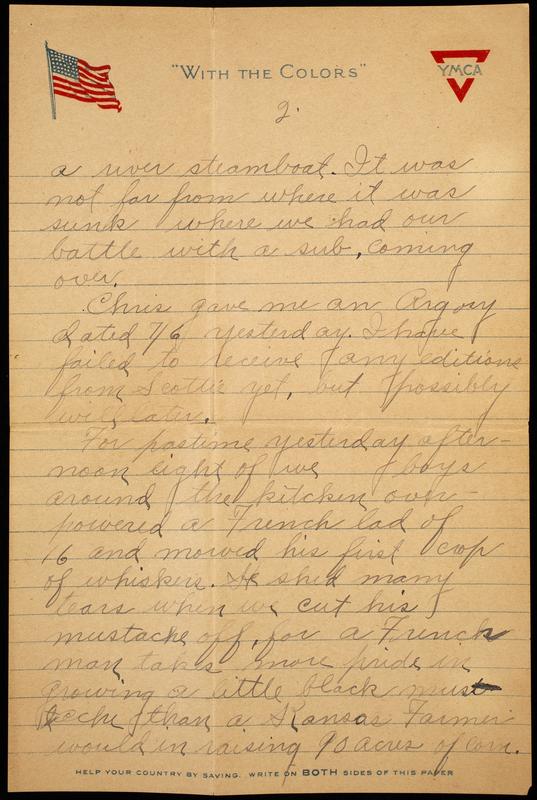 "WITH THE COLORS"
YMCA
2.
a river steamboat. It was
not far from where it was
sunk where we had our
battle with a sub, coming
over.
Chris gave me an Argosy
dated 7/6 yesterday. I have
failed to receive any editions
from Scottie yet, but possibly
will later.
For pastime yesterday after-
noon eight of we boys
around the kitchen over-
powered a French lad of
16 and mowed his first crop
of whiskers. He shed many
tears when we cut his
mustache off, for a French
man takes more pride in
growing a little black must
ache than a Kansas Farmer
would in raising 90 acres of corn.
HELP YOUR COUNTRY BY SAVING. WRITE ON BOTH SIDES OF THIS PAPER